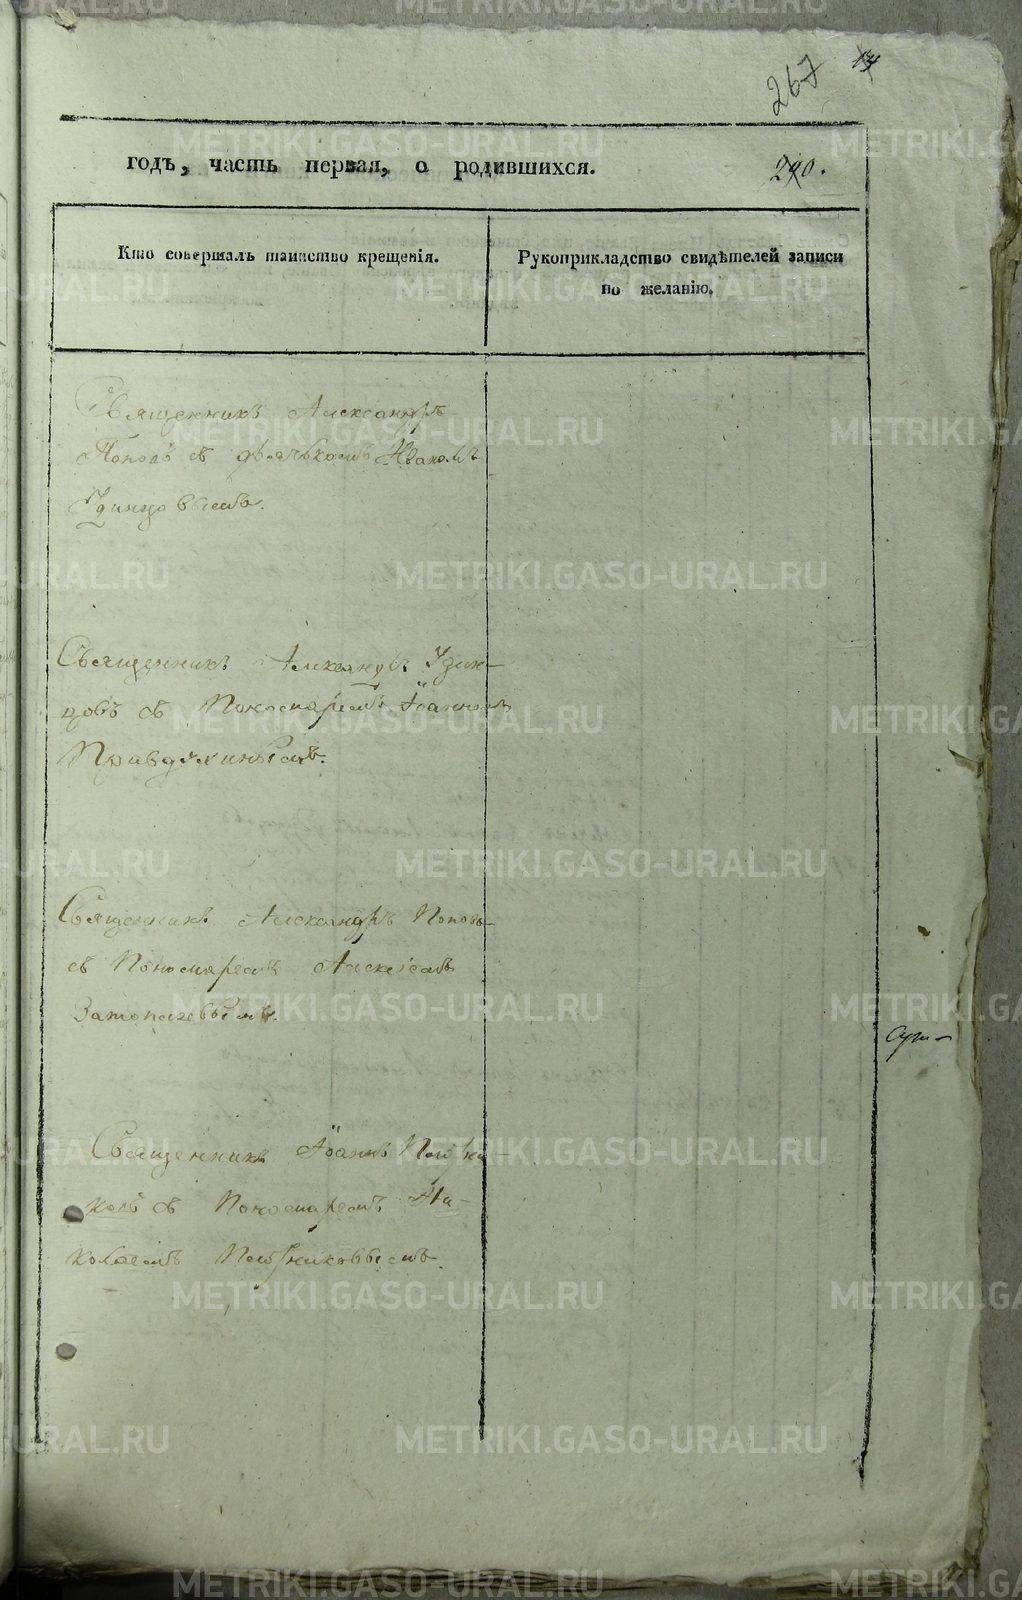 267
годъ, часть первая, о родившихся.
290.
Кто совершалъ таинство крещенія.
Рукоприкладство свидѣтелей записи
по желанію.
Священникъ Александръ
Поповъ съ дьячькомъ Иваномъ
Удинцовымъ.
Священникъ Александръ Удин-
цовъ съ Пономаремъ Іоанномъ
Священникъ Александръ Поповъ
съ Пономаремъ Алексіемъ
Затопляевымъ.
Священникъ Іоаннъ
съ Пономаремъ
METRIKI.GASO-URAL.RU